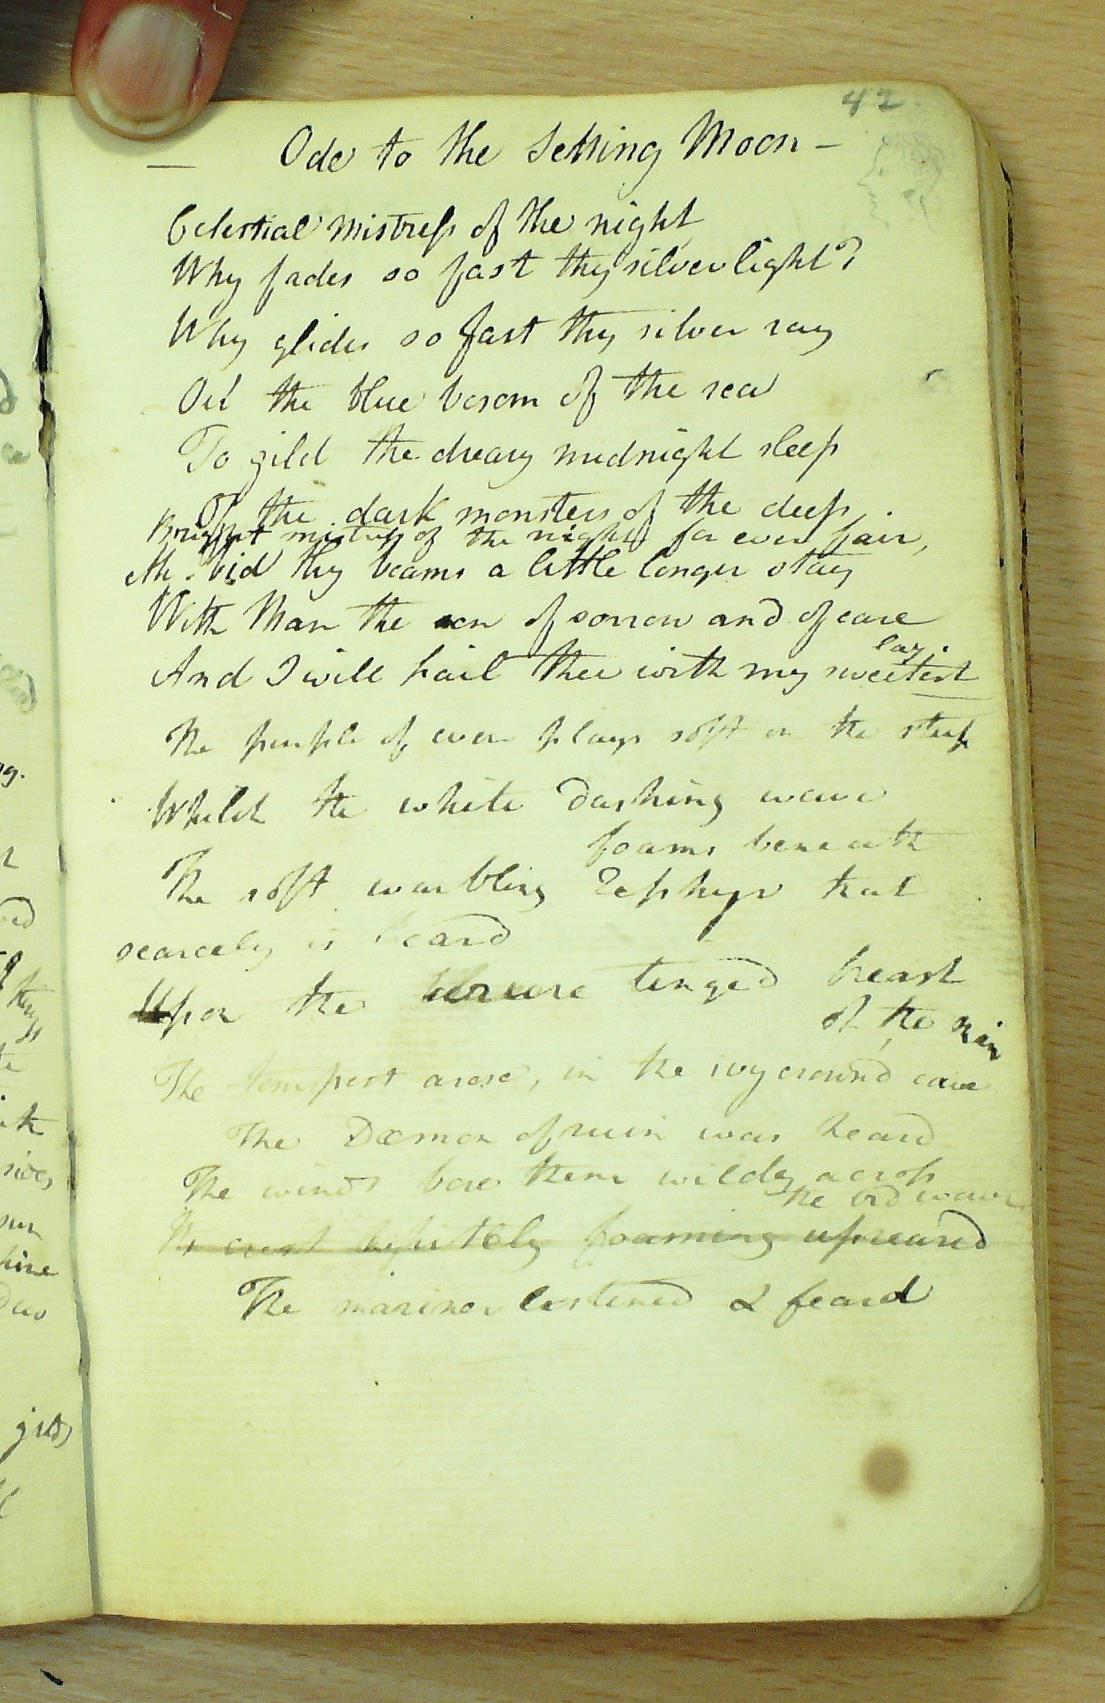 42
Ode to the Setting Moon
Celestial mistress of the night
Why fades so fast thy silver light?
Why glides so fast thy silver ray
Oer the blue bosom of the sea
To gild the dreary midnight sleep
Of the dark monsters of the deep.
Bright mistress of the night for ever fair,
Ah bid thy beams a little longer stay
With Man the son of sorrow and of care
And I will hail thee with my sweetest
lay.
The purple of even plays soft on the steep
Whilst the white dashing wave
foams beneath
The soft warbling Zephyr that
scarcely is heard
Upon the tinged breast
of the
The tempest arose, in the ivy crownd cave
The Dæmon of ruin was heard
The winds bore them wildly across
the wave
foaming upreared
The mariner listened & feard